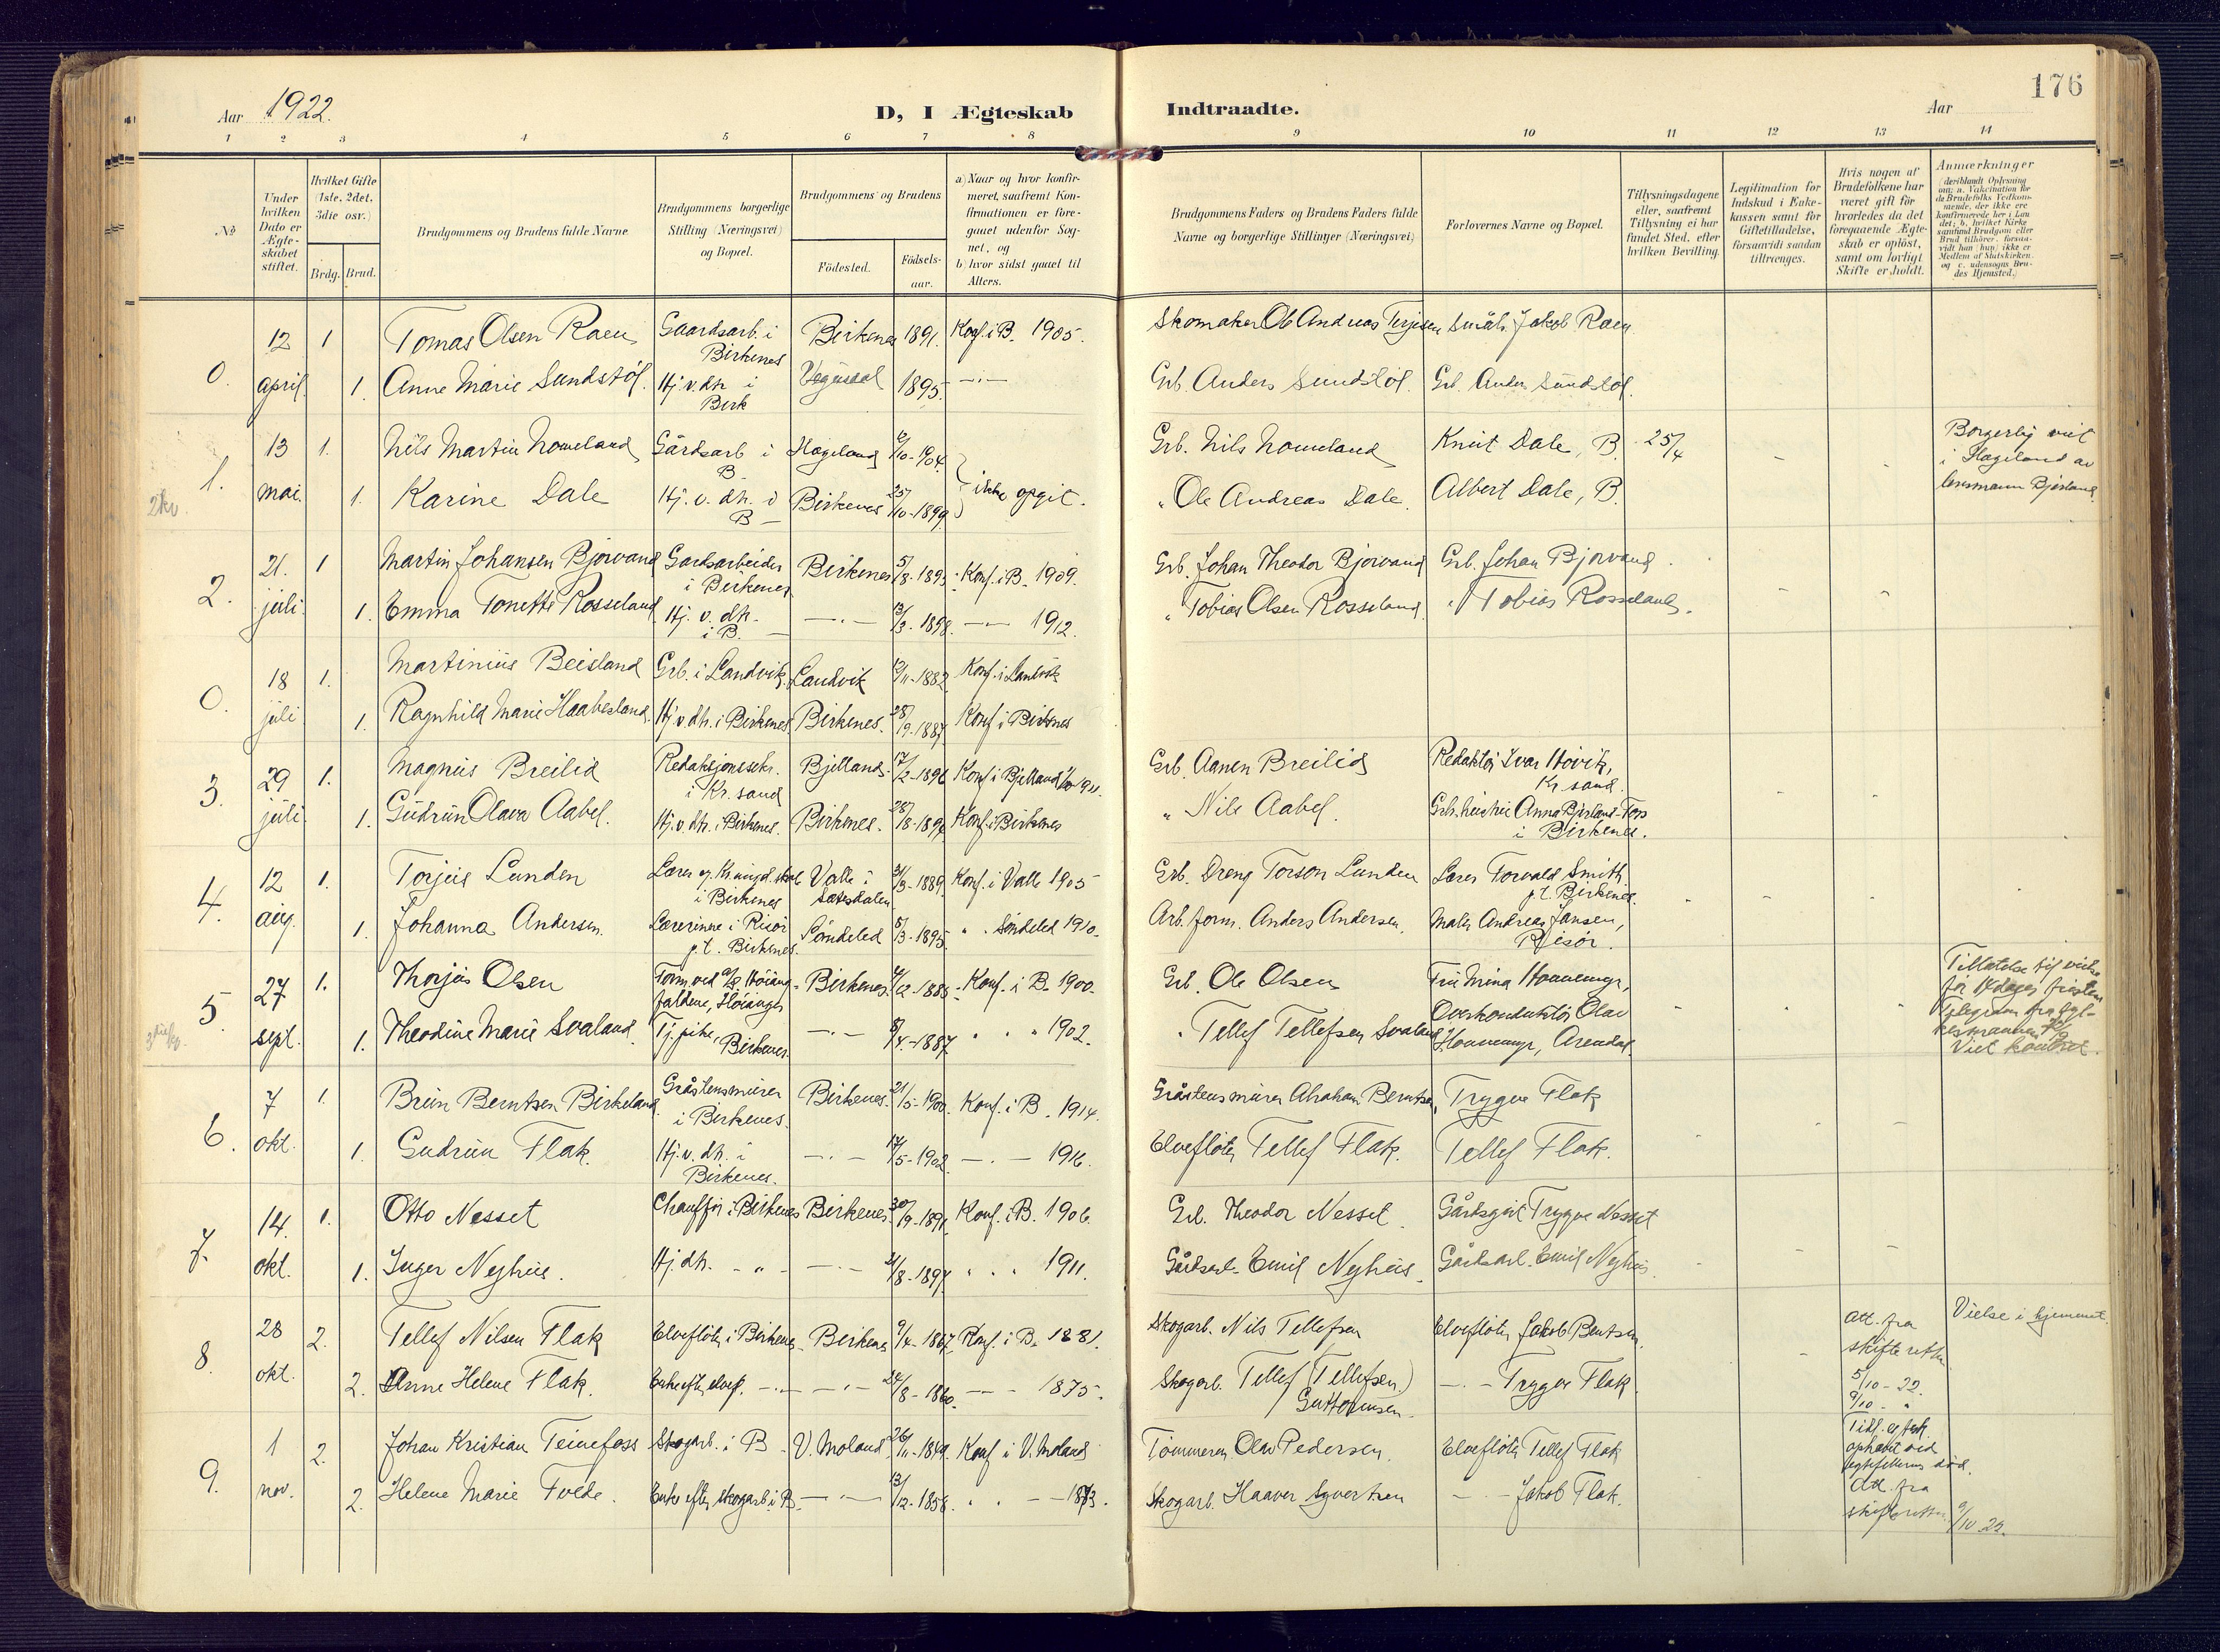 176
Aar 1922.
D, I Ægteskab Indtraadte.
Aar
1 2 3 4 5 6 7 8 9 10 11 12 13 14
No
Under hvilken Dato er Ægteskabet stiftet.
Hvilket Gifte (1ste, 2det, 3die osv.)
Brdg. Brud.
Brudgommens og Brudens fulde Navne
Brudgommens borgerlige Stilling (Næringsvei) og Bopæl.
Brudgommens og Brudens
Fødested. Fødsels-aar.
a) Naar og hvor konfirmeret, saafremt Konfirmationen er foregaaet udenfor Sognet, og b) hvor sidst gaaet til Alters.
Brudgommens Faders og Brudens Faders fulde Navne og borgerlige Stillinger (Næringsvei)
Forlovernes Navne og Bopæl.
Tillysningsdagene eller, saafremt Tillysning ei har fundet Sted, efter hvilken Bevilling.
Legitimation for Indskud i Enkekassen samt for Giftetilladelse, forsaavidt saadan tiltrænges.
Hvis nogen af Brudefolkene har været gift før hvorledes da det foregaaende Ægteskab er opløst, samt om lovligt Skifte er holdt.
Anmærkninger
0. 12 1 Tomas Olsen Raen Gaardsarb. i Birkenes Birkenes 1891. Konf. i B. 1905. Skomaker Ole Andreas Terjesen Småbr. Jakob Raen
april 1. Anne Marie Sundstøl. Hj. v. dtr. i Birk Vegusdal 1895. Grb. Anders Sundstøl. Grb. Anders Sundstøl.
1. 13 1. Nils Martin Nomeland Gårdsarb i B. Hægeland /10-1904 Grb. Nils Nomeland Knut Dale, B. 25/4 Borgerlig viet i Hægeland av lensmann
mai 1. Karine Dale Hj. v. dtr. i B Birkenes 25/10-1899 ikke opgit. " Ole Andreas Dale. Albert Dale, B.
2. 21. 1 Martin Johansen Bjorvand Gardsarbeider i Birkenes Birkenes 5/8-1893 Konf. i B. 1909. Grb. Johan Theodor Bjorvand Grb. Johan Bjorvand
juli 1. Emma Tonette Rosseland Hj. v. dtr. i B. /3-1898. 1912. " Tobias Olsen Rosseland " Tobias Rosseland.
0. 18 1. Martinius Beisland Grb. i Landvik Landvik /11-1882 Konf. i Landvik
juli 1. Ragnhild Marie Haabesland. Hj. v. dtr. i Birkenes Birkenes. 28/9-1887 Konf. i Birkenes
3. 29 1. Magnus Breilid Redaksjonssekr. i Kr.sand Bjelland. 17/2-1896 Konf. i Bjelland 1911. Grb. Aanen Breilid Redaktør Ivar Hövik, Kr.sand.
juli 1. Gudrun Olava Aabel. Hj. v. dtr. i Birkenes. Birkenes. 28/8-1896 Konf. i Birkenes " Nils Aabel. Grb. hustru Anna i Birkenes.
4. 12 1. Torjus Lunden Lærer i Birkenes Valle i Sætesdalen /3-1889 Konf. i Valle 1905 Grb. Dreng Torson Lunden Lærer Torvald Smith p.t. Birkenes.
aug. 1. Johanna Andersen. Lærerinne i Risör p.t. Birkenes. Söndeled /3-1895 " Söndeled 1910. Arb. form. Anders Andersen. Maler Andreas Jansen, Risör.
5. 27 1. Thorjus Olsen Form. ved Birkenes. /12-1885 Konf. i B. 1900. Grb. Ole Olsen Fru Mina Honnemyr,
sept. 1. Theodine Marie Svaland. Tj. pike, Birkenes. /4-1887 1902. " Tellef Tellefsen Svaland Overkonduktör Olav Honnemyr, Arendal.
6. 7 1. Brun Berntsen Birkeland Gråstensmurer i Birkenes. Birkenes. 21/5-1900. Konf. i B. 1914. Gråstensmurer Abraham Berntsen. Trygve Flak
okt. 1. Gudrun Flak. Hj. v. dtr. i Birkenes. 17/5-1902 1916. Elvefløter Tellef Flak. Tellef Flak.
7. 14. 1. Otto Nesset Chauffør i Birkenes Birkenes 30/9-1891 Konf. i B. 1906. Grb. Theodor Nesset Gårdsgut Trygve Nesset
okt. 1. Inger Nyhus. Hj. dtr. " /8-1897. 1911. Gårdsarb. Emil Nyhus Gårdsarb. Emil Nyhus.
8. 28 2. Tellef Nilsen Flak Elvefløter i Birkenes Birkenes 9/4-1867. Konf. i B. 1881. Skogarb. Nils Tellefsen Elvefløter Jakob Bentsen. Att. fra skifteretten Vielse i hjemmet.
okt. 2. Anne Helene Flak. Enke efter elvefl. 24/8-1860. 1875. Skogarb. Tellef (Tellefsen) Guttormsen. Trygve Flak 5/10-22. 9/10 "
9. 1 2. Johan Kristian Teinefoss Skogarb. i B V. Moland 26/11-1849. Konf. i V. Moland Tömmerm. Olav Pedersen. Elvefløter Tellef Flak Tidl. egtesk. ophævet ved egtefellernes død.
nov. 2. Helene Marie Tvede. Enke efter skogarb. i B. 13/12-1858. 1873. Skogarb. Haaver Syvertsen Jakob Flak. Att. fra skifteretten 9/10 22.